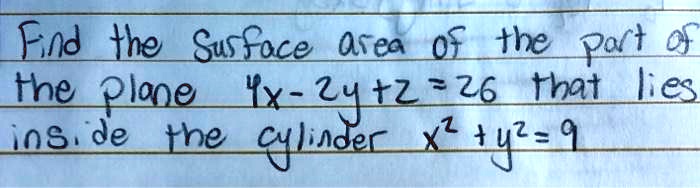 Find the Surface area of the part of
the plane 4x - 2y + z = 26 that lies
inside the cylinder x² + y² = 9